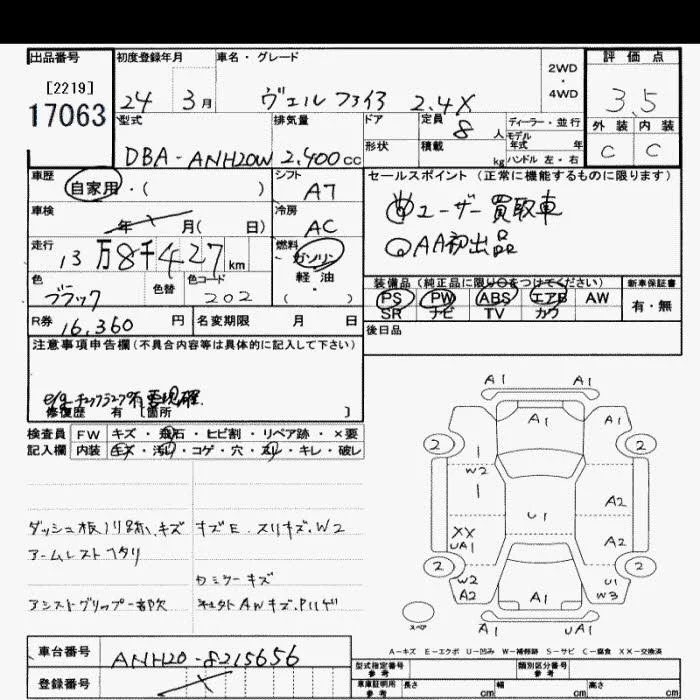 出品番号
[2219]
17063
初度登録年月
24 3月
車名・グレード
ヴェルファイア 2.4X
2WD
・
4WD
評価点
3.5
外装 内装
C C
型式
DBA-ANH20W
排気量
2.400cc
ドア
定員
8人
ディーラー・並行
モデル
年式 年
形状
積載
kg
ハンドル 左・右
車歴
自家用・( )
シフト
A7
車検
年 月( 日)
冷房
AC
走行
13万8千427km
燃料
ガソリン
軽・油
( )
色
ブラック
色替
色コード
202
R券 16,360円
名変期限 月 日
セールスポイント (正常に機能するものに限ります)
ユーザー買取車
AA初出品
装備品(純正品に限り○をつけてください)
新車保証書
PS PW ABS エアB AW
SR ナビ TV カワ
有・無
後日品
注意事項申告欄(不具合内容等は具体的に記入して下さい)
修復歴 有 [箇所 ]
検査員 FW キズ・飛石・ヒビ割・リペア跡・×要
記入欄 内装 キズ・汚れ・コゲ・穴・スレ・キレ・破レ
ダッシュ板ハリ跡、キズ
キズE.スリキズ.W2
アームレストヘタリ
アシストグリップ一部欠
A1 A1
A1 A1
2 2
1
W2
1
U1
A2
XX
UA1
A2
2 2
W2
A2
A1
U1
W3
A1 UA1 A1
スペア
A-キズ E-エクボ U-凹み W-補修跡 S-サビ C-腐食 XX-交換済
車台番号
ANH20-8215656
登録番号
型式指定番号
参考
類別区分番号
参考
車庫証明用
参考
長さ cm
幅 cm
高さ cm